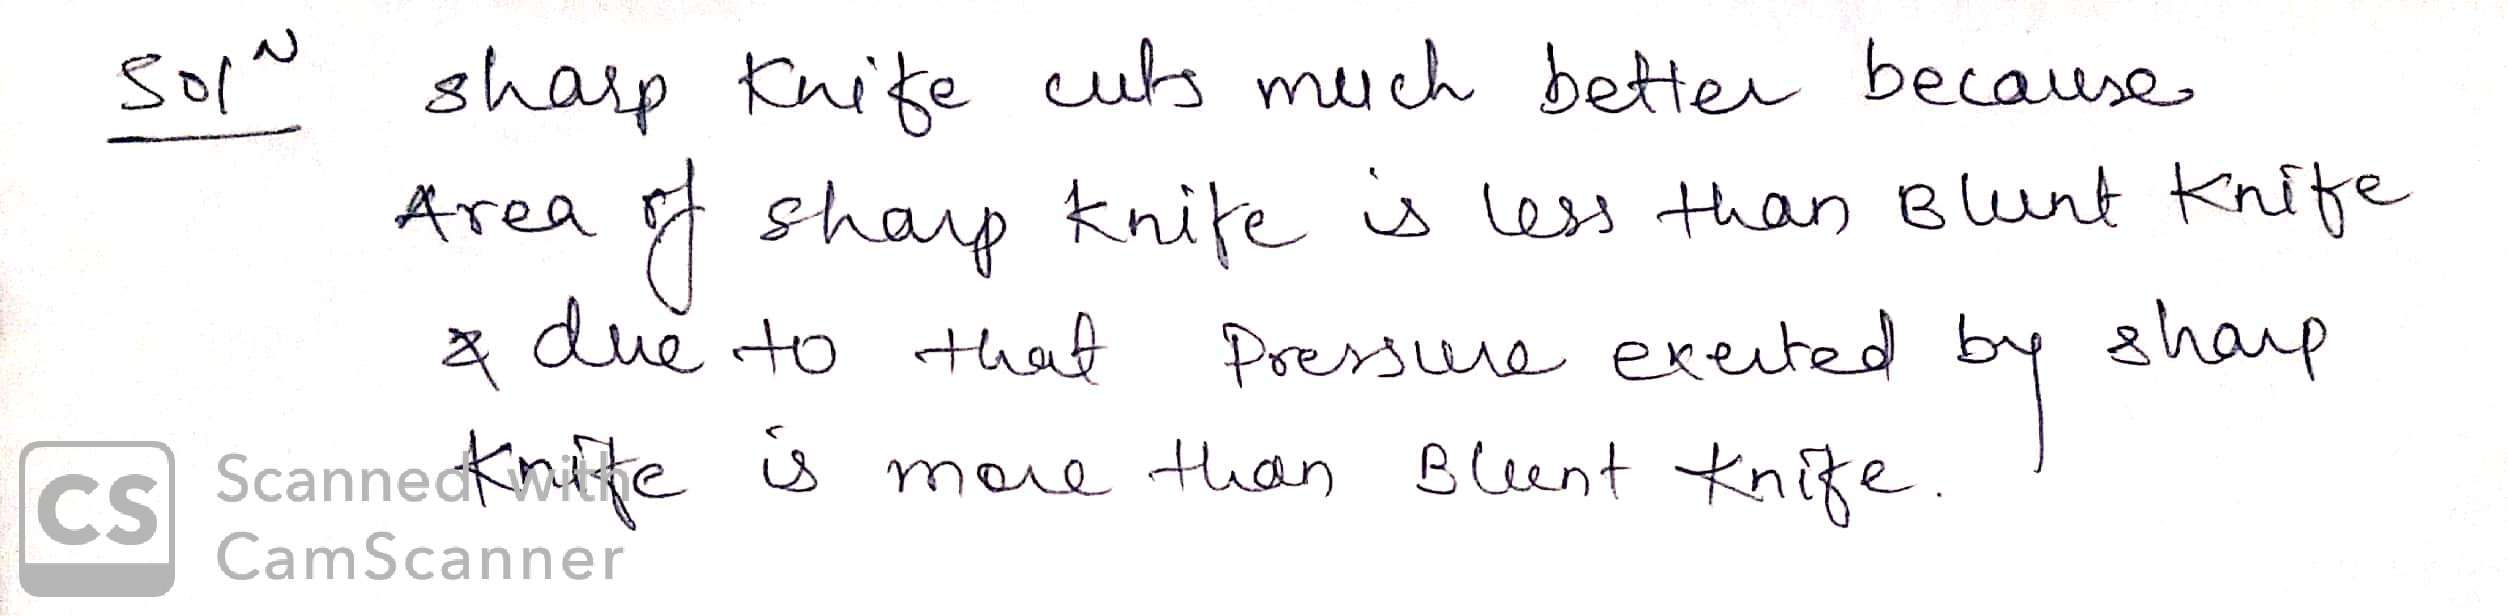 Solⁿ sharp Knife cuts much better because
Area of sharp Knife is less than Blunt Knife
& due to that Pressure exerted by sharp
Knife is more than Blunt Knife.
CS Scanned with
CamScanner